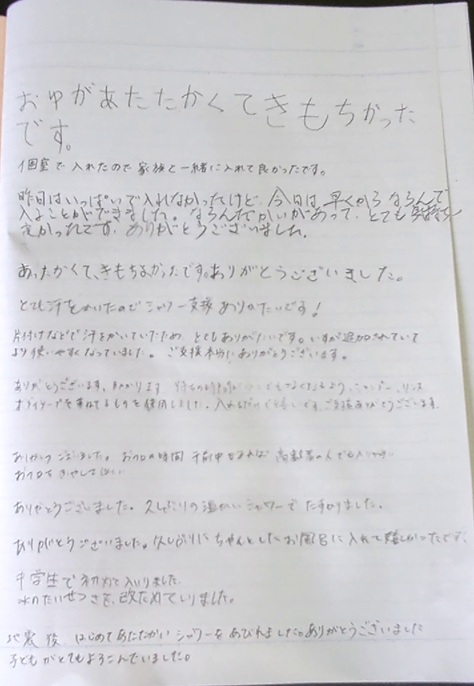 おゆがあたたかくてきもちかった
です。
個室で入れたので家族と一緒に入れて良かったです。
昨日はいっぱいで入れなかったけど、今日は早くから ならんで
入ることができました。ならんだかいがあって、とても気持ち
よかったです。ありがとうございました。
あったかくて、きもちよかったです。ありがとうございました。
とても汗をかいたのでシャワー支援ありがたいです！
片付けなどで汗をかいていたため、とてもありがたいです。いすが追加されていて
より使いやすくなっていました。ご支援本当にありがとうございます。
ありがとうございます。助かります
使用しました。ご支援ありがとうございます。
ありがとうございました。お風呂の時間 午前中もあれば 高齢者の人でも
おフロをふやしてほしい
ありがとうございました。久しぶりの温かいシャワーでたすかりました。
ありがとうございました。久しぶりにちゃんとしたお風呂に入れて嬉しかったです。
中学生で初めて入いりました。
水のたいせつさを、改ためてしりました。
地震後、はじめてあたたかいシャワーをあびれました。ありがとうございました
子どもがとてもよろこんでいました。